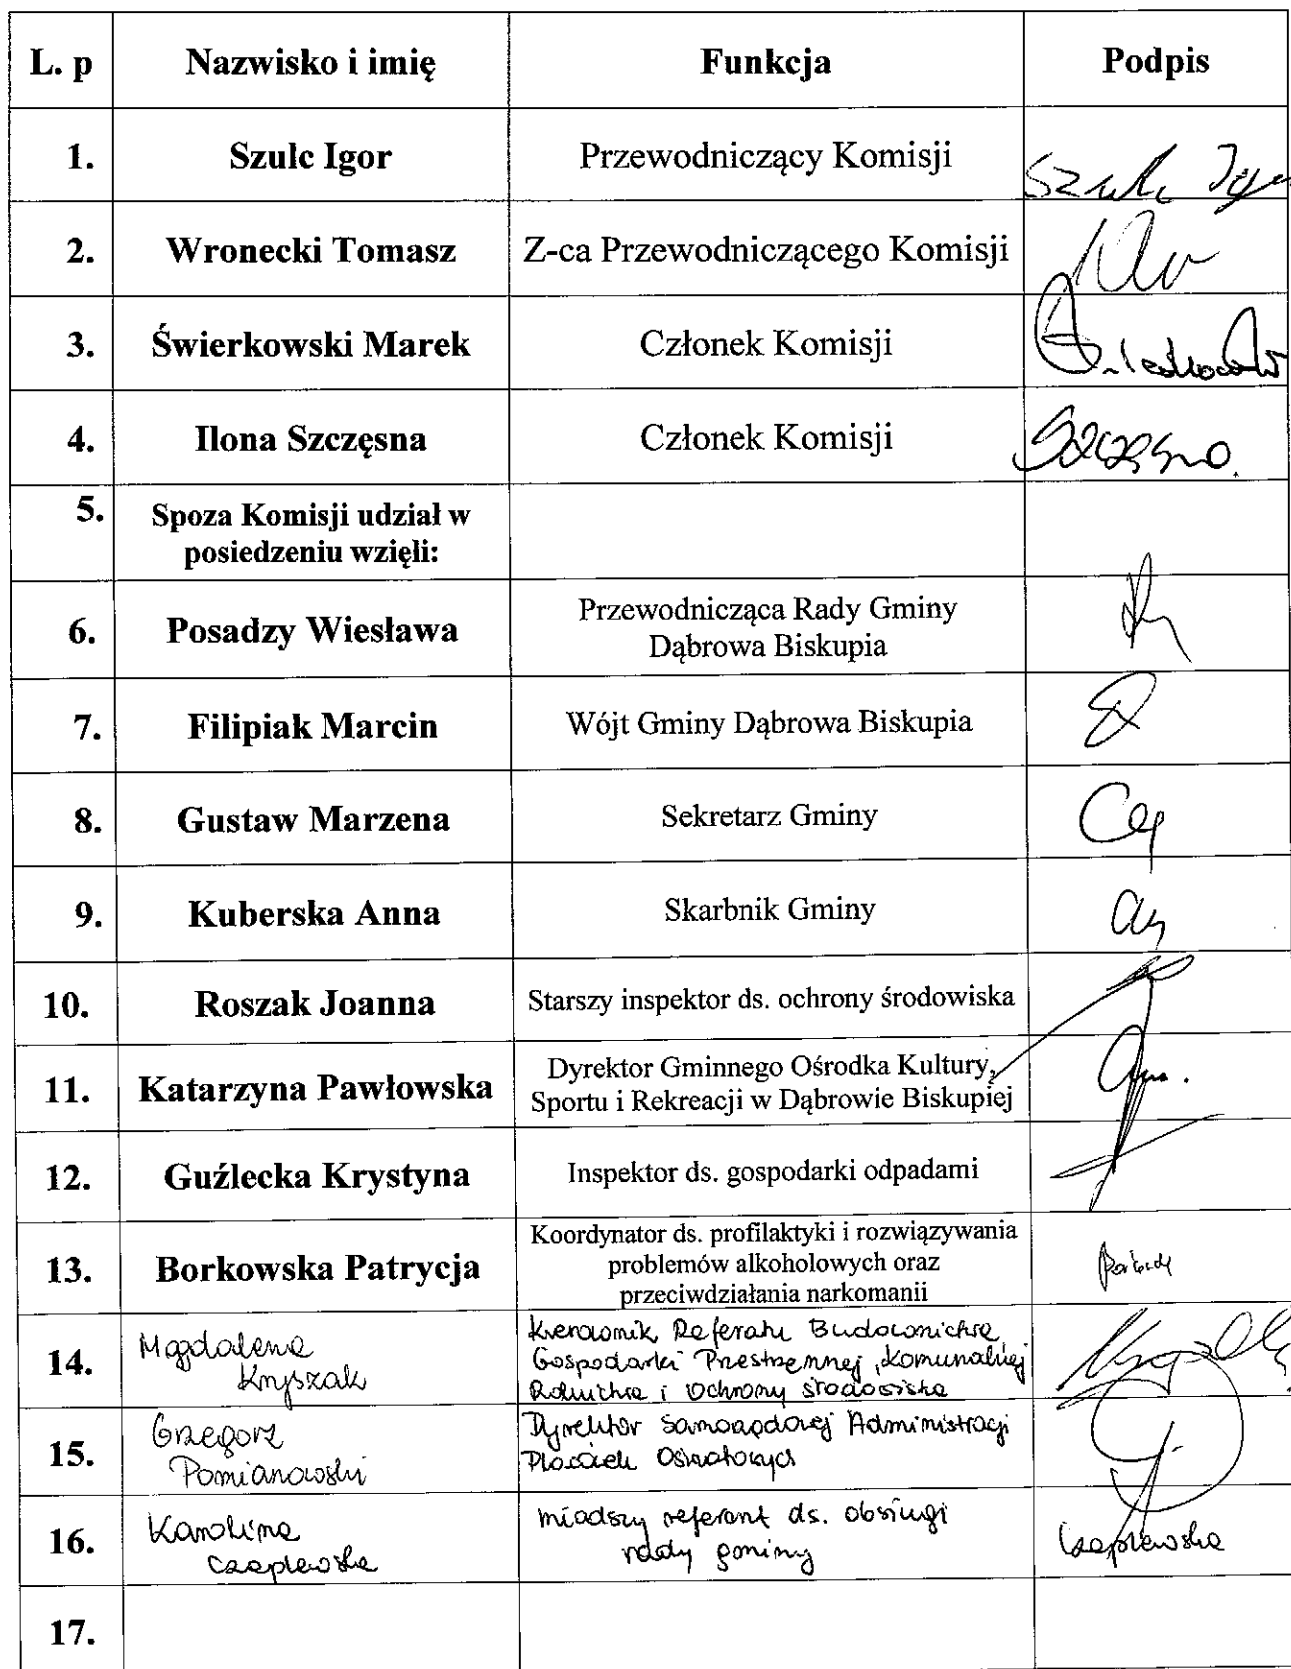 L. p Nazwisko i imię Funkcja Podpis
1. Szulc Igor Przewodniczący Komisji Szulc Igor
2. Wronecki Tomasz Z-ca Przewodniczącego Komisji
3. Świerkowski Marek Członek Komisji
4. Ilona Szczęsna Członek Komisji Szczęsna
5. Spoza Komisji udział w
posiedzeniu wzięli:
6. Posadzy Wiesława Przewodnicząca Rady Gminy
Dąbrowa Biskupia
7. Filipiak Marcin Wójt Gminy Dąbrowa Biskupia
8. Gustaw Marzena Sekretarz Gminy
9. Kuberska Anna Skarbnik Gminy
10. Roszak Joanna Starszy inspektor ds. ochrony środowiska
11. Katarzyna Pawłowska Dyrektor Gminnego Ośrodka Kultury,
Sportu i Rekreacji w Dąbrowie Biskupiej
12. Guźlecka Krystyna Inspektor ds. gospodarki odpadami
13. Borkowska Patrycja Koordynator ds. profilaktyki i rozwiązywania
problemów alkoholowych oraz
przeciwdziałania narkomanii
14. Magdalena
Kryszak
Kierownik Referatu Budownictwa,
Gospodarki Przestrzennej, Komunalnej
Rolnictwa i Ochrony środowiska
15. Grzegorz
Pomianowski
Dyrektor Samorządowej Administracji
Placówek Oświatowych
16. Karolina
Czaplewska
młodszy referent ds. obsługi
rady gminy
Czaplewska
17.